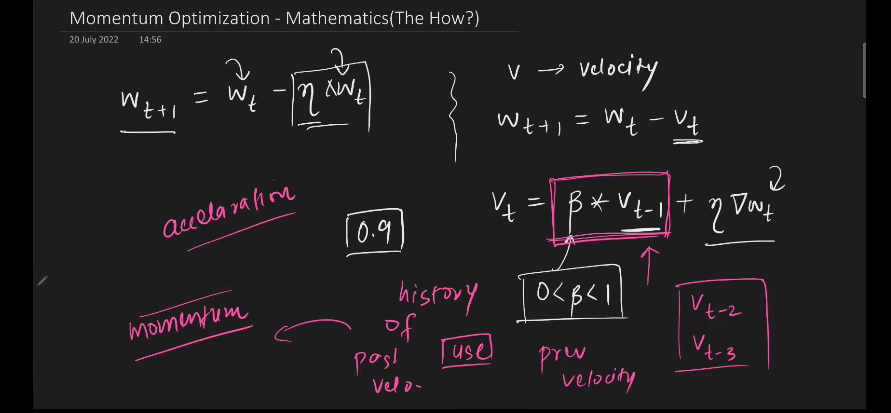 Momentum Optimization - Mathematics(The How?)
20 July 2022 14:56
w_{t+1} = w_t - η ∇w_t
v → velocity
w_{t+1} = w_t - v_t
v_t = β * v_{t-1} + η ∇w_t
accelaration
0.9
0 < β < 1
momentum
history
of
past
velo
use
prev
velocity
v_{t-2}
v_{t-3}